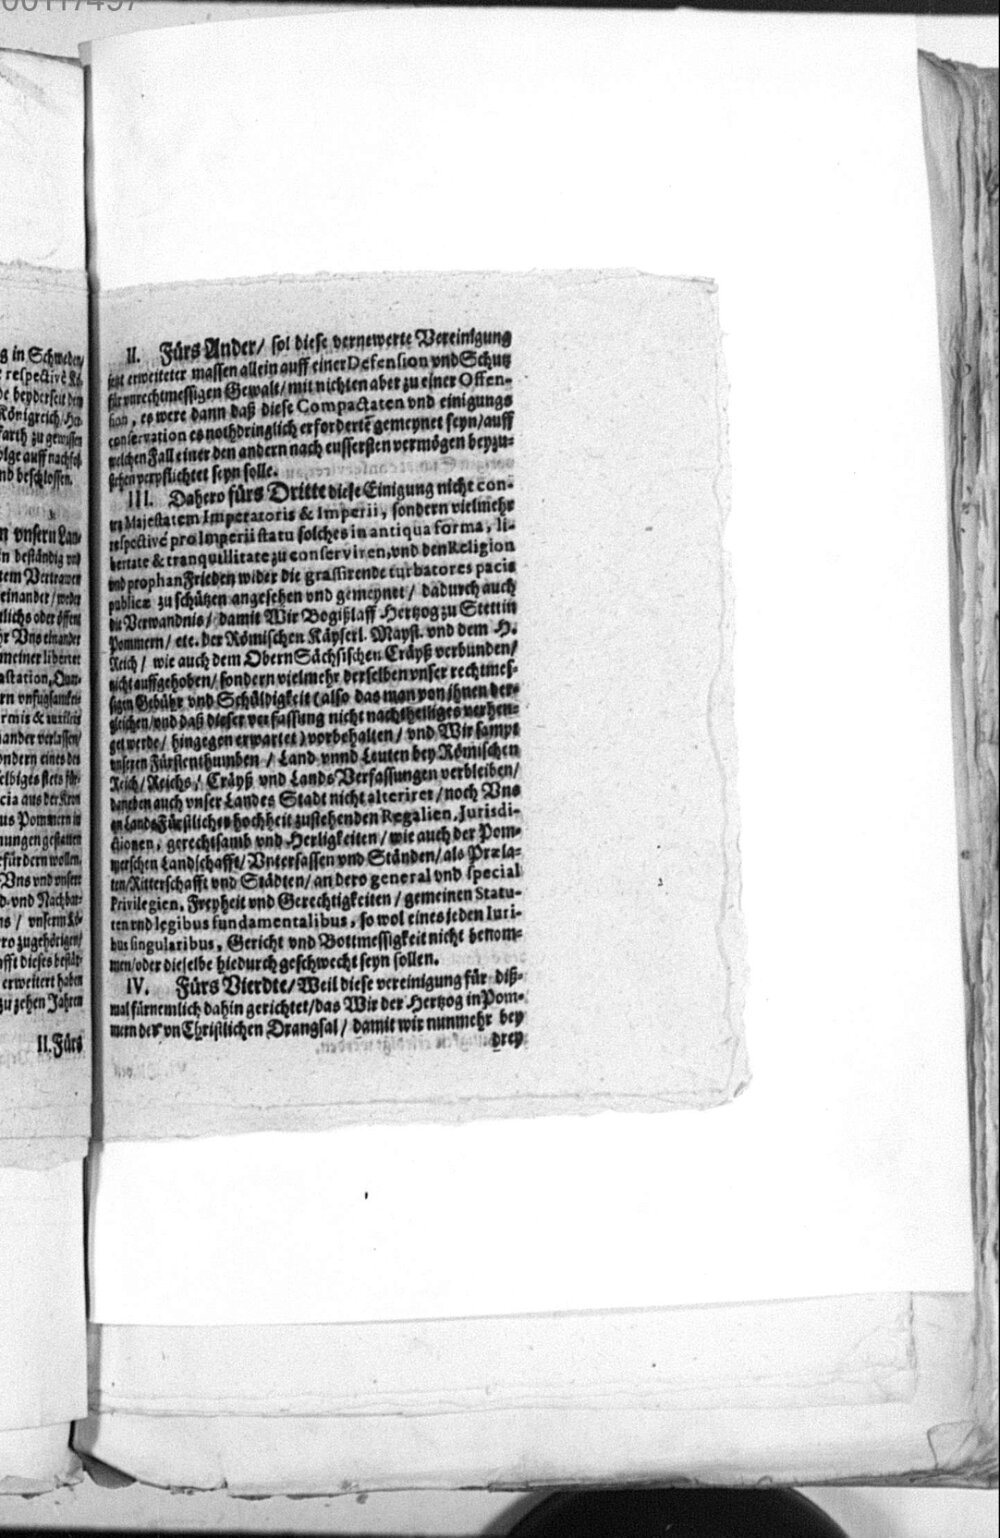 00117497
g in Schweden/
respectivè Kö-
de beyderseit den
Königreich/Her-
farth zu gewissen
olge auff nachfol-
nd beschlossen.
n vnsern Lan-
n beständig vnd
tem Vertrawen
einander/weder
tlichs oder öffent
hr Vns einander
meiner libertet
astation, Quar-
rn vnfugsamkeit
rmis & auxiliis
ander verlassen/
ondern eines des
elbiges stets für-
cia aus der Kron
us Pommern in
nungen gestatten
efürdern wollen.
Vns vnd vnsere
d-vnd Nachbar-
ns / vnserm Kö-
ro zugehörigen/
fft dieses bestät-
erweitert haben
zu zehen Jahren
II. Fürs
II. Fürs Ander/ sol diese vernewerte Vereinigung
jetzt erweiteter massen allein auff einer Defension vnd Schutz
für vnrechtmessigen Gewalt/mit nichten aber zu einer Offen-
sion, es were dann daß diese Compactaten vnd einigungs
conservation es nothdringlich erforderte gemeynet seyn/auff
welchen Fall einer den andern nach eussersten vermögen beyzu-
stehen verpflichtet seyn solle.
III. Dahero fürs Dritte diese Einigung nicht con-
tra Majestatem Imperatoris & Imperii, sondern vielmehr
respectivè pro Imperii statu solches in antiqua forma, li-
bertate & tranquillitate zu conserviren, vnd den Religion
vnd prophan Frieden wider die grassirende turbatores pacis
publicæ zu schützen angesehen vnd gemeynet/ dadurch auch
die Verwandnis/ damit Wir Bogißlaff Hertzog zu Stettin
Pommern/ etc. der Römischen Käyserl. Mayst. vnd dem H.
Reich/ wie auch dem Obern Sächsischen Cräyß verbunden/
nicht auffgehoben/ sondern vielmehr derselben vnser rechtmes-
sigen Gebühr vnd Schüldigkeit (also das man von ihnen der-
gleichen/vnd daß dieser verfassung nicht nachtheiliges verhen-
get werde/ hingegen erwartet) vorbehalten/ vnd Wir sampt
vnseren Fürstenthumben / Land vnnd Leuten bey Römischen
Reich/ Reichs/ Cräyß vnd Lands Verfassungen verbleiben/
daneben auch vnser Landes Stadt nicht alteriret/noch Vns
an Lands Fürstlicher hochheit zustehenden Regalien, Jurisdi-
ctionen, gerechtsamb vnd Herligkeiten/ wie auch der Pom-
merschen Landschafft/ Vntersassen vnd Ständen/ als Præla-
ten/Ritterschafft vnd Städten/ an dero general vnd special
Privilegien, Freyheit vnd Gerechtigkeiten / gemeinen Statu-
ten vnd legibus fundamentalibus, so wol eines jeden Iuri-
bus singularibus, Gericht vnd Bottmessigkeit nicht benom-
men/oder dieselbe hiedurch geschwecht seyn sollen.
IV. Fürs Vierdte/ Weil diese vereinigung für diß-
mal fürnemlich dahin gerichtet/das Wir der Hertzog in Pom-
mern der vn Christlichen Drangsal / damit wir nunmehr bey
drey